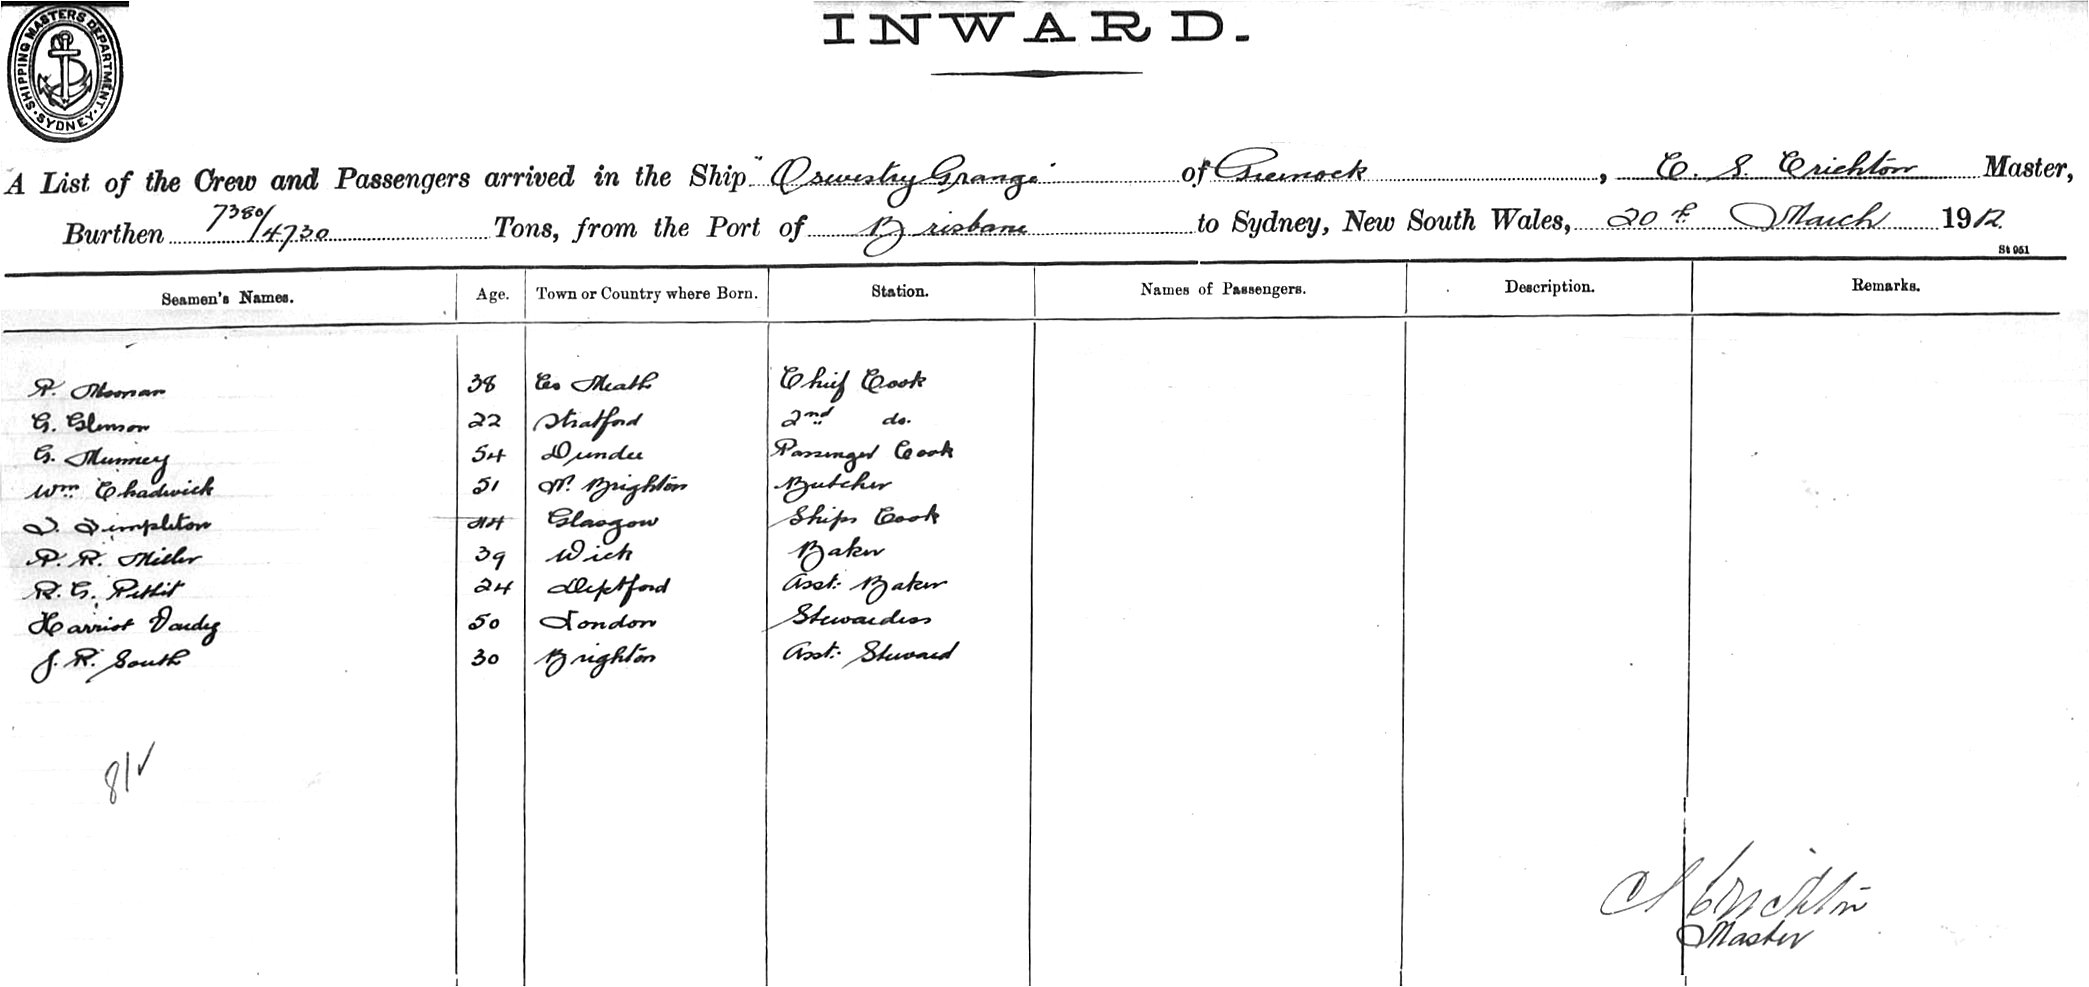 SHIPPING MASTERS DEPARTMENT. SYDNEY.
INWARD.
A List of the Crew and Passengers arrived in the Ship "Oswestry Grange" of Greenock, C. S. Crichton Master,
Burthen 7380/4730 Tons, from the Port of Brisbane to Sydney, New South Wales, 20th March 1912
St 951
Seamen's Names. Age. Town or Country where Born. Station. Names of Passengers. Description. Remarks.
Moonan 38 Co Meath Chief Cook
G. 22 Stratford 2nd do.
G. 54 Dundee Passenger Cook
Wm Chadwick 51 N. Brighton Butcher
Templeton 44 Glasgow Ships Cook
R. Miller 39 Wick Baker
R. G. Pettit 24 Deptford Asst. Baker
Harriot 50 London Stewardess
J. R. South 30 Brighton Asst. Steward
8/✓
C S Crichton
Master